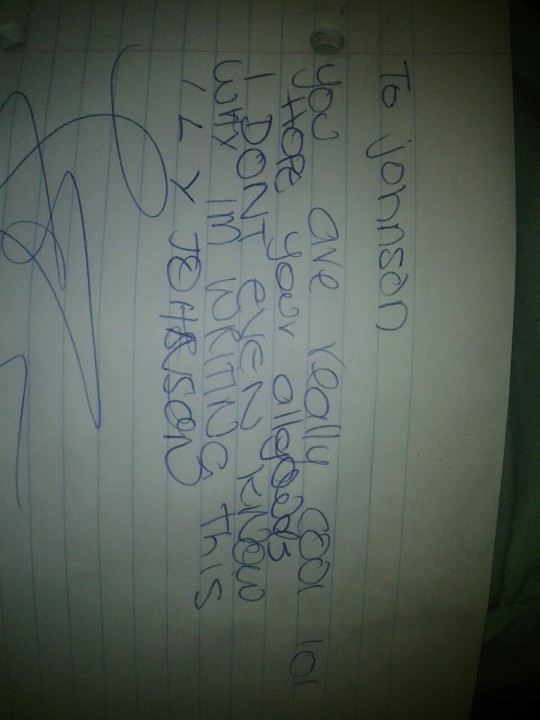 To johnson
you are really cool lol
HOPE your allgoods
I DONT EVEN KNOW
WHY IM WRITING THIS
I L Y JOHNSON